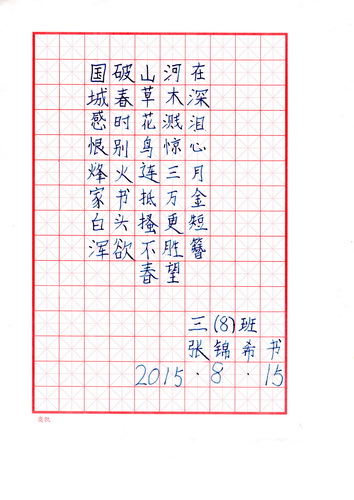 国破山河在
城春草木深
感时花溅泪
恨别鸟惊心
烽火连三月
家书抵万金
白头搔更短
浑欲不胜簪
春望
三(8)班
张锦希书
2015.8.15